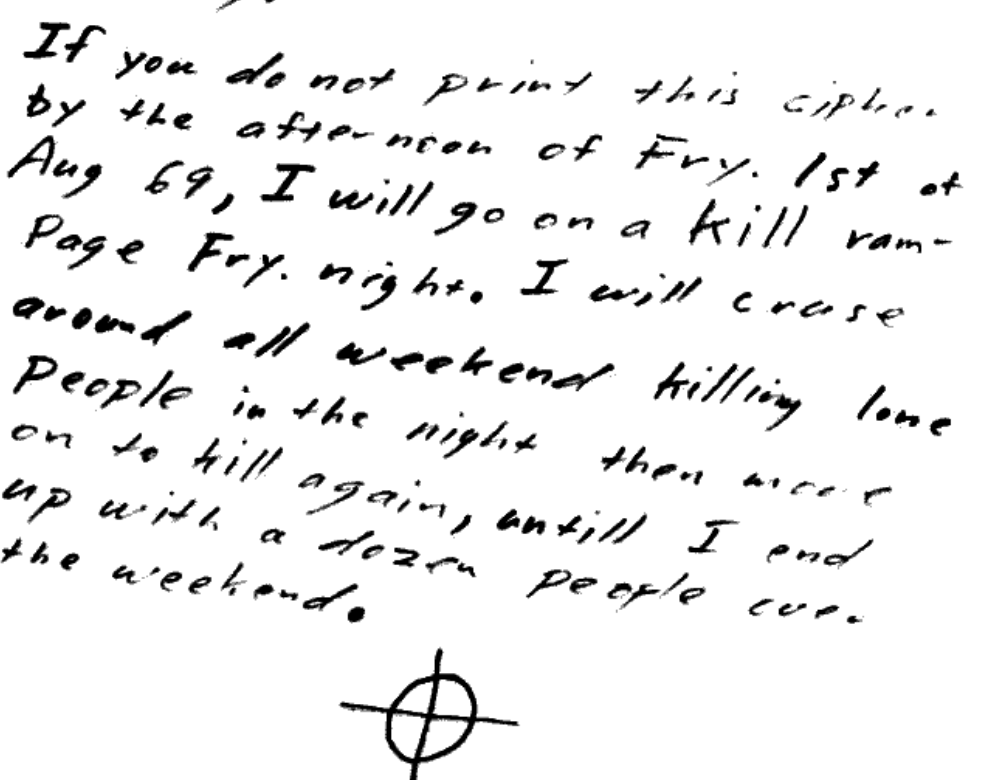 If you do not print this cipher
by the afternoon of Fry. 1st of
Aug 69, I will go on a kill ram-
Page Fry. night. I will cruse
around all weekend killing lone
People in the night then move
on to kill again, untill I end
up with a dozen people over
the weekend.